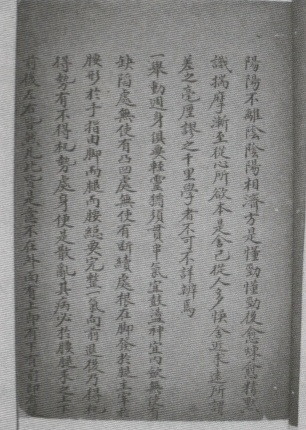 陽陽不離陰陰陽相濟方是懂勁懂勁後愈煉愈精默
識揣摩漸至從心所欲本是舍己從人多悞舍近求遠所謂
差之毫厘謬之千里學者不可不詳辨焉
一舉動週身俱要輕靈猶須貫串氣宜鼓盪神宜內歛無使有
缺陷處無使有凸凹處無使有斷續處根在脚發於腿主宰於
腰形於手指由脚而腿而腰總要完整一氣向前退後乃得机
得勢有不得机勢處身便是散亂其病必於腰腿求之上下
前後左右皆然凡此皆是意不在外面有上即有下有前即有